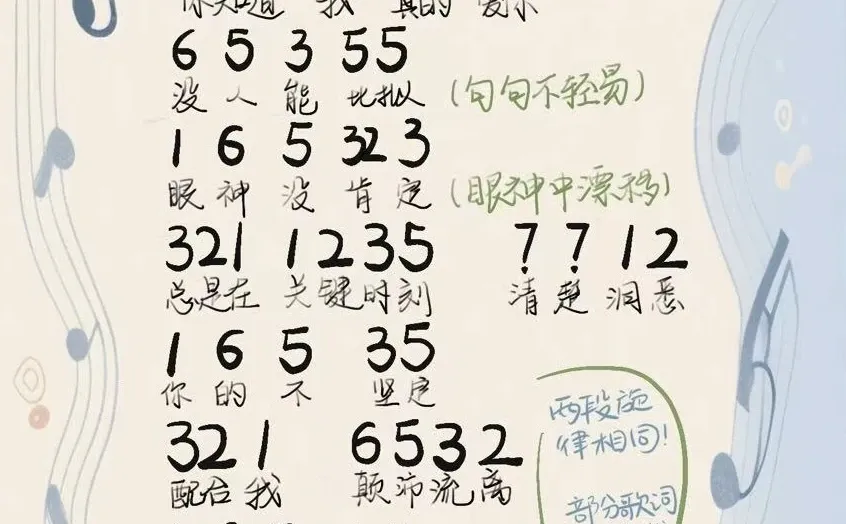 你知道 我 真的 爱你
6 5 3 55
没人能比拟(句句不轻易)
1 6 5 323
眼神没肯定(眼神中漂移)
321 1235 ??12
总是在关键时刻 清楚洞悉
1 6 5 35
你的不 坚定
321 6532
配合我 颠沛流离
两段旋
律相同!
部分歌词